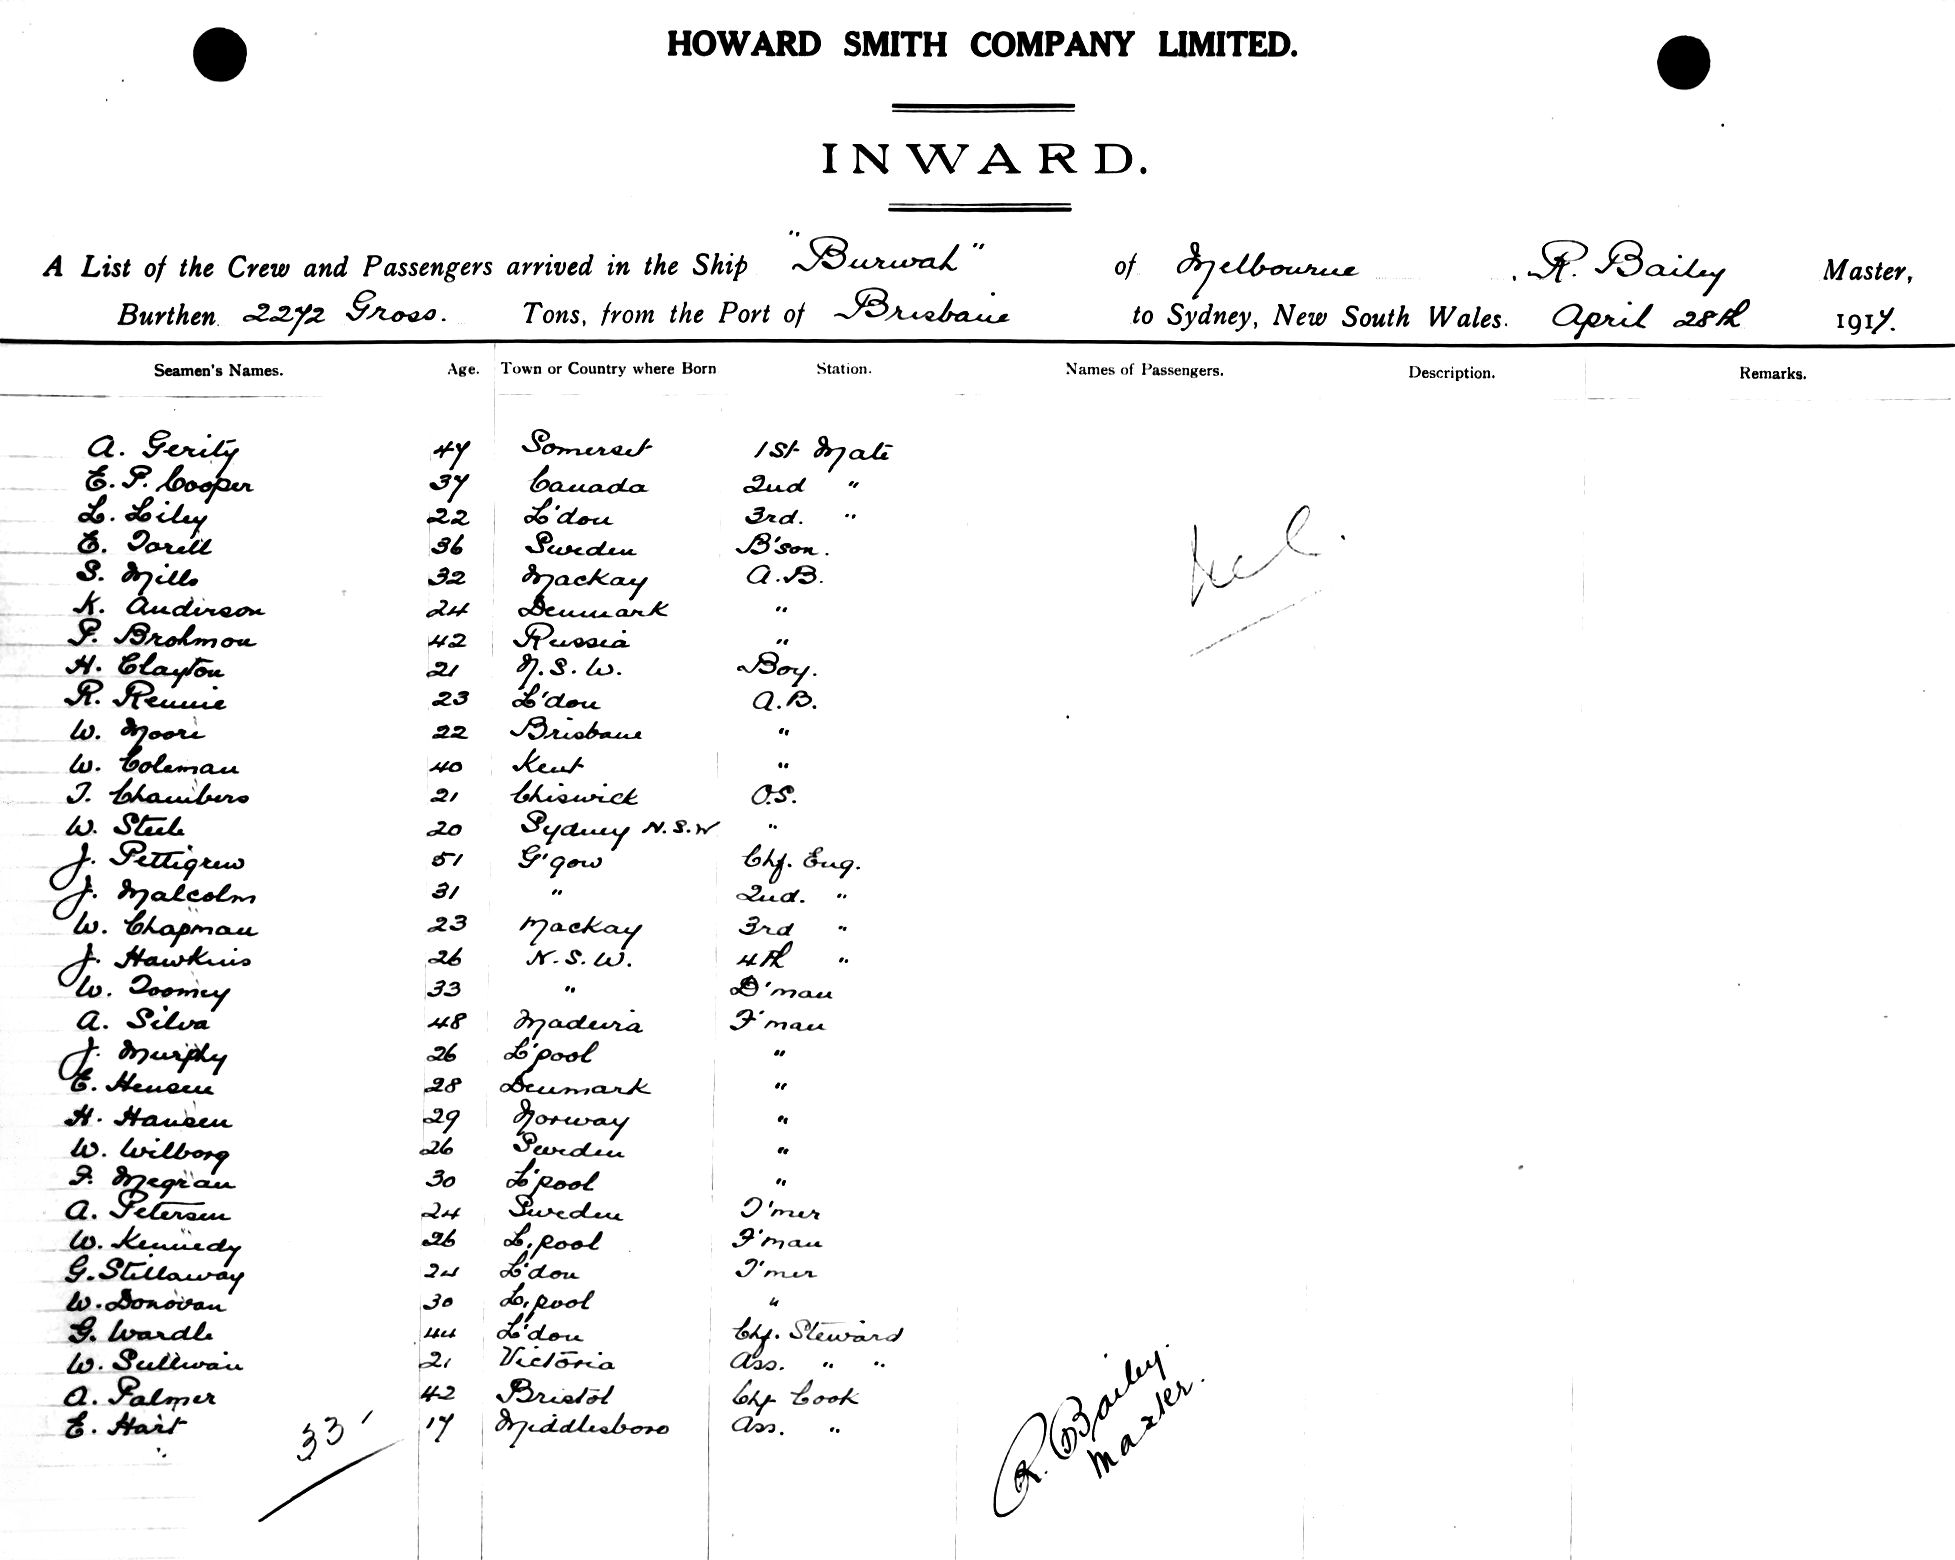 HOWARD SMITH COMPANY LIMITED.
INWARD.
A List of the Crew and Passengers arrived in the Ship "Burwah" of Melbourne, R. Bailey Master,
Burthen 2272 Gross. Tons, from the Port of Brisbane to Sydney, New South Wales. April 28th 1917.
Seamen's Names. Age. Town or Country where Born Station. Names of Passengers. Description. Remarks.
A. Gerity 47 Somerset 1st Mate
E. P. Cooper 37 Canada 2nd "
L. Liley 22 L'don 3rd. "
E. Torell 36 Sweden B'son.
S. Mills 32 Mackay A.B.
K. Anderson 24 Denmark "
P. Brohmon 42 Russia "
H. Clayton 21 N.S.W. Boy.
R. Rennie 23 L'don A.B.
W. Moore 22 Brisbane "
W. Coleman 40 Kent "
T. Chambers 21 Chiswick O.S.
W. Steele 20 Sydney N.S.W "
J. Pettigrew 51 G'gow Chf. Eng.
J. Malcolm 31 " 2nd. "
W. Chapman 23 Mackay 3rd "
J. Hawkins 26 N.S.W. 4th "
W. Toomey 33 " D'man
A. Silva 48 Madeira F'man
J. Murphy 26 L'pool "
E. Hensen 28 Denmark "
H. Hansen 29 Norway "
W. Wilborg 26 Sweden "
F. Megran 30 L'pool "
A. Petersen 24 Sweden T'mer
W. Kennedy 26 L'pool F'man
G. Stillaway 24 L'don T'mer
W. Donovan 30 L'pool "
G. Wardle 44 L'don Chf. Steward
W. Sullivan 21 Victoria Ass. " "
A. Palmer 42 Bristol Chf Cook
E. Hart 17 Middlesboro Ass. "
33
R. Bailey.
Master.